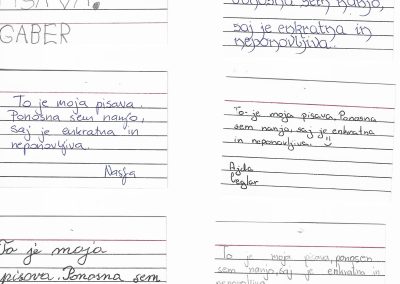 PISAVA.
GABER
ponosna sem nanjo,
saj je enkratna in
neponovljiva.
To je moja pisava.
Ponosna sem nanjo,
saj je enkratna in
neponovljiva.
Nastja
To je moja pisava. Ponosna
sem nanjo, saj je enkratna
in neponovljiva.
Ajda
Ceglar
To je moja
pisava. Ponosna sem
To je moja pisava, ponosen
sem nanjo, saj je enkratna in
neponovljiva